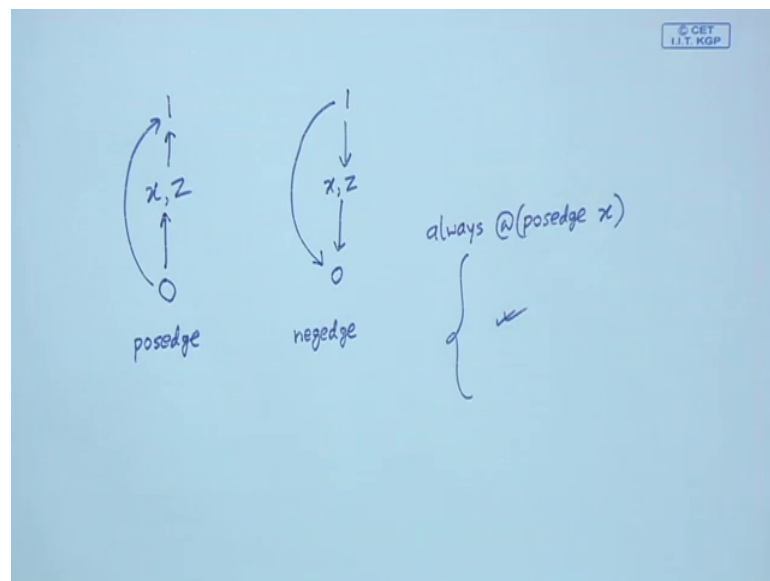 © CET
I.I.T. KGP
1
x, z
0
posedge
1
x, z
0
negedge
always @(posedge x)